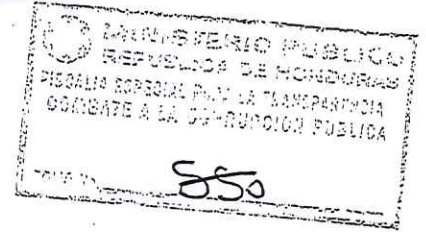 MINISTERIO PUBLICO
REPUBLICA DE HONDURAS
FISCALIA ESPECIAL PARA LA TRANSPARENCIA
COMBATE A LA CORRUPCION PUBLICA
FOLIO No. 550